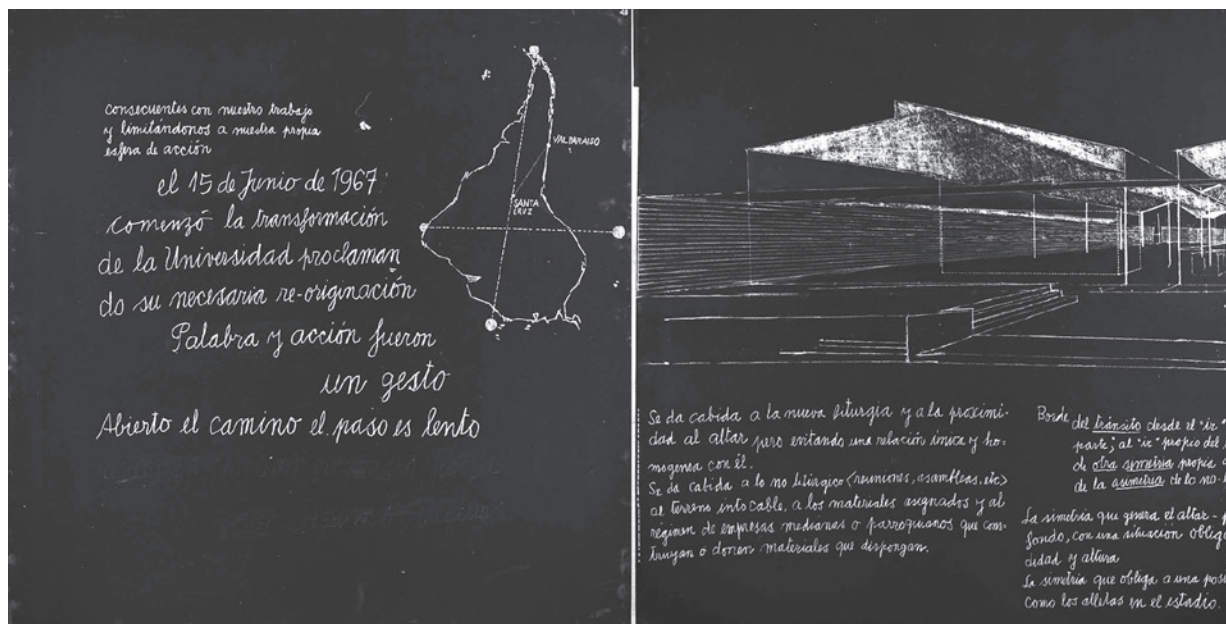 48
consecuentes con nuestro trabajo
y limitándonos a nuestra propia
esfera de acción
el 15 de Junio de 1967
comenzó la transformación
de la Universidad proclaman
do su necesaria re-originación
Palabra y acción fueron
un gesto
Abierto el camino el paso es lento
VALPARAISO
SANTA
CRUZ
Se da cabida a la nueva liturgia y a la proximi-
dad al altar pero evitando una relación única y ho-
mogenea con él.
Se da cabida a lo no litúrgico <reuniones, asambleas, etc>
al terreno intocable, a los materiales asignados y al
régimen de empresas medianas o parroquianos que cons-
truyan o donen materiales que dispongan.
Borde del tránsito desde el "ir"
parte; al "ir" propio del
de otra simetría propia
de la asimetría de lo no-
La simetría que genera el altar-
fondo, con una situación
didad y altura
La simetría que obliga a una
como los atletas en el estadio.